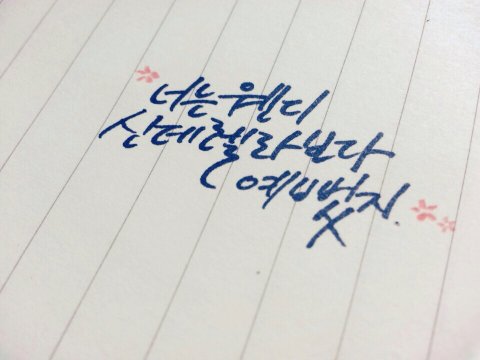 너는 웬디
신데렐라보다
예뻤지.